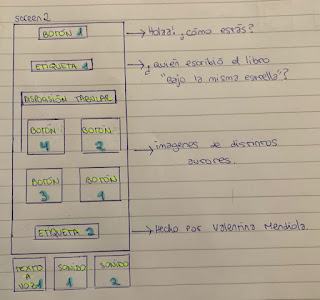 screen2
BOTÓN 1
Holaa! ¿cómo estás?
ETIQUETA 1
¿quién escribió el libro
"Bajo la misma estrella"?
DISPOSICIÓN TABULAR
BOTÓN BOTÓN
4 2
imagenes de distintos
autores.
BOTÓN BOTÓN
3 1
ETIQUETA 2
Hecho por Valentina Mendiola.
TEXTO SONIDO SONIDO
A 1 2
VOZ 1